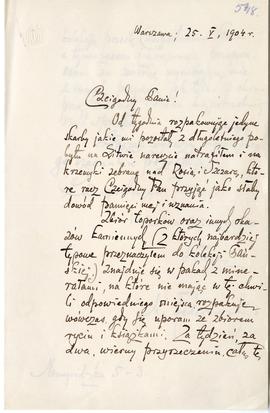 548.
Warszawa; 25. V, 1904 r.
Czcigodny Panie!
Od tygodnia rozpakowując jedyne
skarby jakie mi pozostały z długoletniego po-
bytu na Litwie nareszcie natrafiłem i na
krzemyki zebrane nad Rosią i Szczarą, któ-
re racz Czcigodny Pan przyjąć jako słaby
dowód pamięci mej i uznania.
Zbiór toporków oraz innych oka-
zów kamiennych (z których najbardziej
typowe przeznaczyłem do kolekcji Pań-
skiej,) znajduje się w pakach z mine-
rałami, na które nie mając w tej chwi-
li odpowiedniego miejsca rozpakuję
wówczas, gdy się uporam ze zbiorem
rycin i książkami. Za tydzień, za
dwa, wierny przyrzeczeniu, całą tę